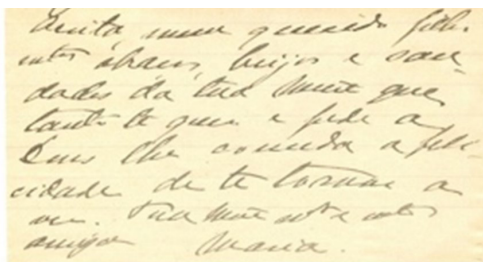 meu querido filho
abraços, beijos e sau
dades da tua mãe que
tanto te quer e pede a
Deus lhe conceda a feli-
cidade de te tornar a
ver. Tua mãe
amiga Maria.